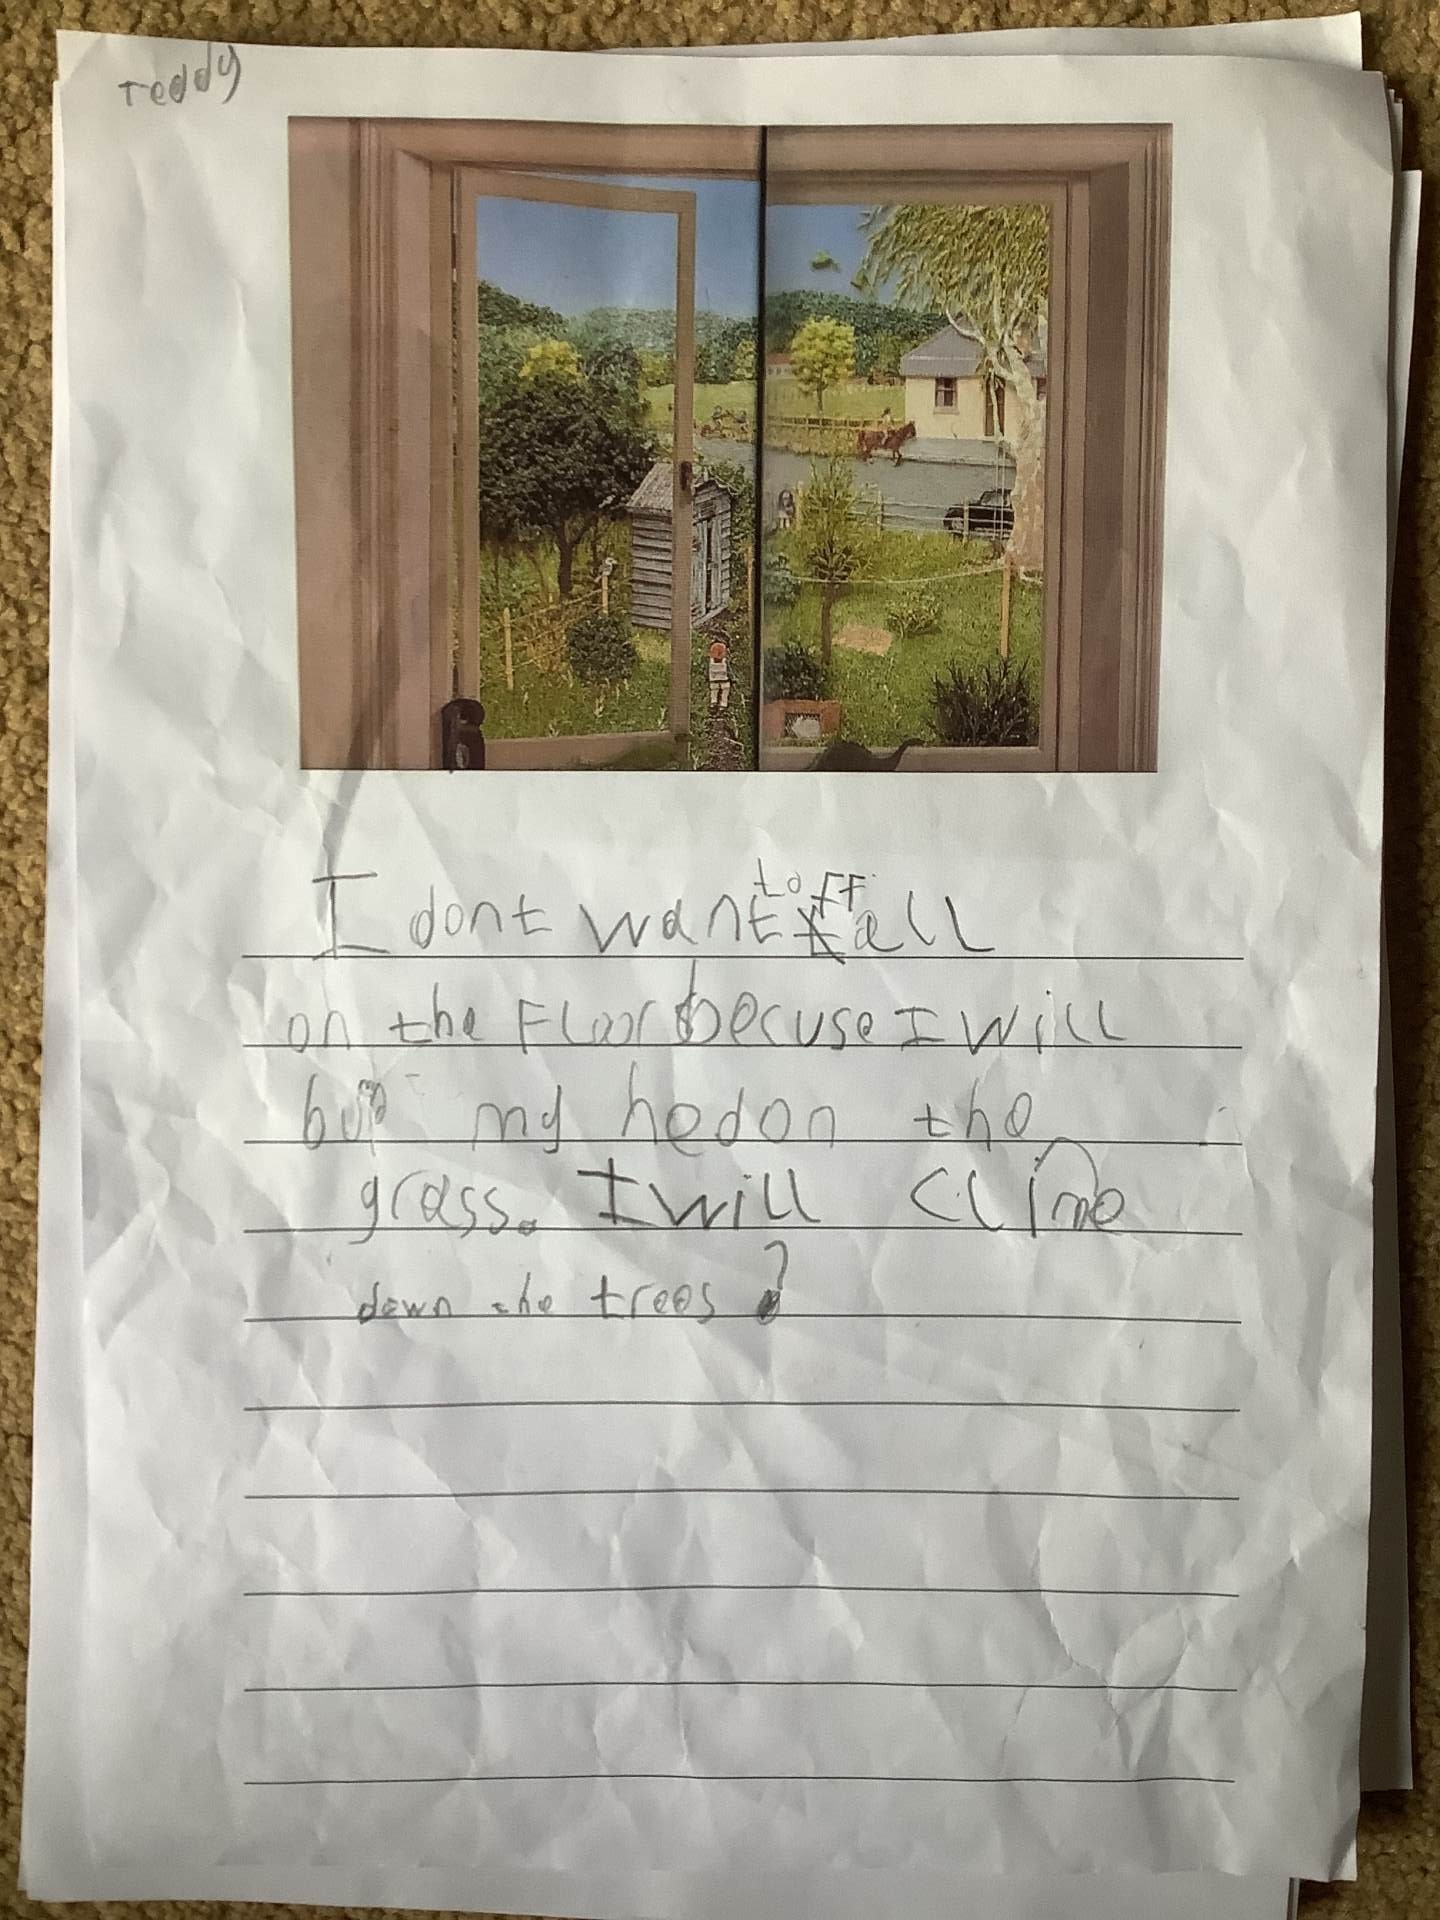 teddy
I dont want to fall
on the Floor becuse I will
bup my hed on the
grass. I will clime
down the trees?